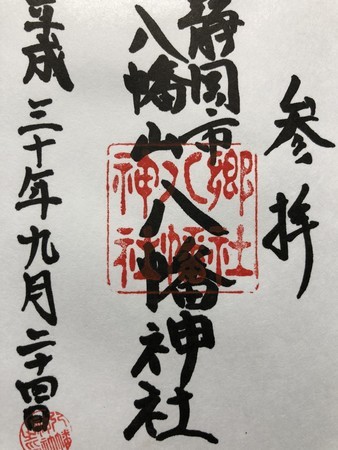 参拝
静岡市
八幡山八幡神社
郷社
八幡
神社
平成三十年九月二十四日